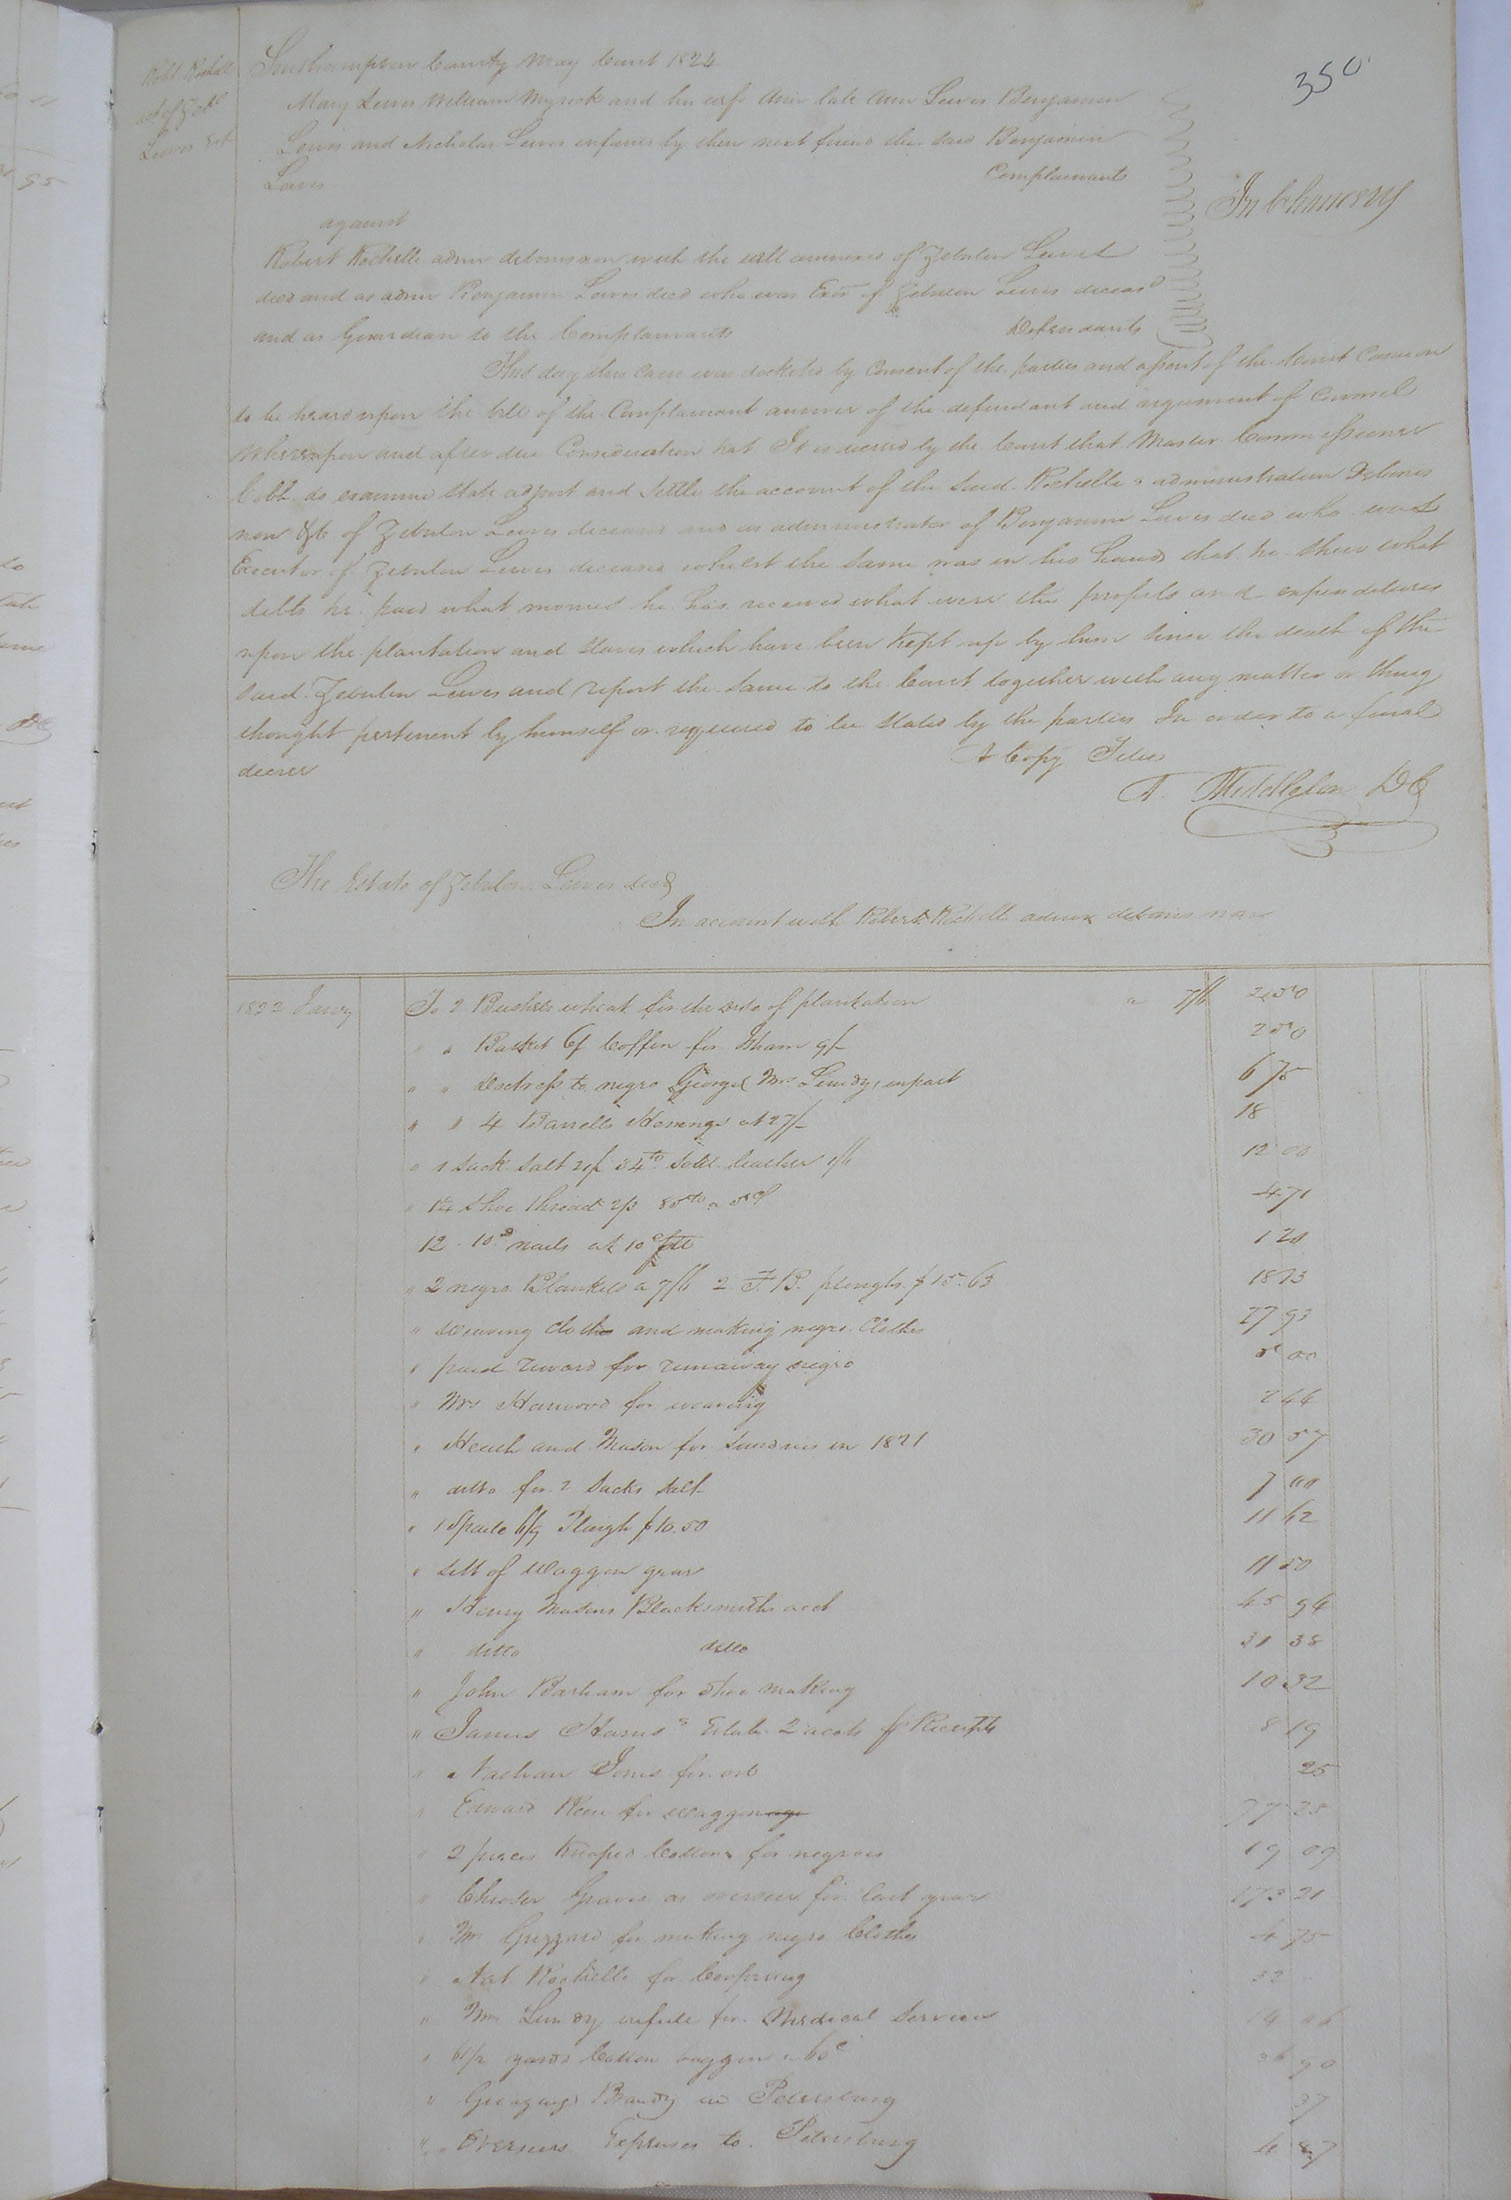 350
Robt Rochelle
act of Zebl
Lewis Est
Southampton County May Court 1824
Mary Lewis William Myrick and his wife Ann late Ann Lewis Benjamin
Lewis and Nicholas Lewis infants by their next friend the said Benjamin
Lewis
Complainants
In Chancery
against
Robert Rochelle admr debonisnon with the will annexed of Zebulon Lewis
decd and as admr Benjamin Lewis decd who was Exor of Zebulon Lewis deceasd
and as Guardian to the Complainants
Defendants
This day this Cause was docketed by Consent of the parties and assent of the Court Came on
to be heard upon the bill of the Complainant answer of the defendant and argument of Counsel
Whereupon and after due Consideration hat It is decreed by the Court that Master Commissioner
Cobb do examine state adjust and settle the account of the said Rochelle s administration Debonis
non &c of Zebulon Lewis deceased and as administrator of Benjamin Lewis decd who was
Executor of Zebulon Lewis deceased whilst the same was in his hands that he shew what
debts he paid what monies he has received what were the profits and expenditures
upon the plantation and slaves which have been kept up by him since the death of the
said Zebulon Lewis and report the same to the Court together with any matter or thing
thought pertinent by himself or required to be stated by the parties In order to a final
decree
A Copy Teste
A. Middleton DC
The Estate of Zebulon Lewis decd
In account with Robert Rochelle admr debonis non
1822 Jany To 2 Bushels wheat for the use of plantation a 7/6 2 50
" " Basket Coffin for Isham 9/ 2 50
" " Doctress to negro George Mrs Lundy, in part 6 75
" " 4 Barrells Herrings at 27/ 18
" 1 Sack Salt 21/ 34 lb sole leather 1/6 12 00
" shoe thread 2/3 4 71
12 10d nails at 10c 1 20
" 2 negro Blankets a 7/6 2 F.B. ploughs $15.63 18 13
" weaving cloth and making negro Clothes 27 93
" paid reward for runaway negro 5 00
" Mrs Harwood for weaving 2 44
" Heath and Mason for sundries in 1821 30 57
" ditto for 2 sacks salt 7 00
" 1 Spade 6/9 Plough $10.50 11 62
" sett of Waggon gear 11 50
" Henry Masons Blacksmiths acct 45 94
" ditto ditto 31 38
" John Barham for shoe making 10 32
" James Harris's Estate 2 accts pr Receipts 8 19
" Nathan Jones for 25
" Edward for waggon 77 25
" 2 pieces Cotton for negroes 19 09
" Graves as overseer for last year 173 21
" Mrs Grizzard for making negro Clothes 4 75
" Nat Rochelle for Coopering 32
" Mrs Lundy in full for Medical Services 14
" 61 1/2 yards Cotton baggin a 60c 36 90
" Brandy in Petersburg 37
" " Overseers Expenses to Petersburg 4 87